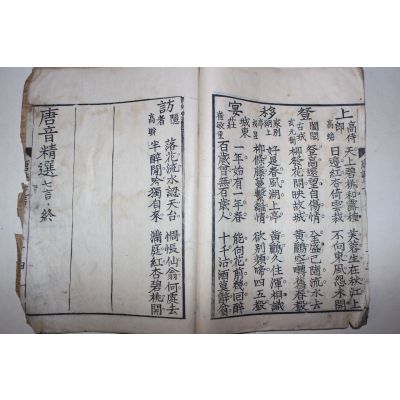 上高侍郎 高蟾
天上碧桃和露種 芙蓉生在秋江上
日邊紅杏倚雲栽 不向東風怨未開
登闔閭古城 武元衡
登高遠望自傷情 全盛已隨流水去
柳發花開映故城 黃鸝空囀舊春聲
移家別湖上亭 戎昱
好是春風湖上亭 黃鸝久住渾相識
柳條藤蔓繫離情 欲別頻啼四五聲
宴城東莊 崔敏童
一年始有一年春 能向花前幾回醉
百歲曾無百歲人 十千沽酒莫辭貧
訪隱者 高駢
落花流水認天台 惆悵仙翁何處去
半醉閑吟獨自來 滿庭紅杏碧桃開
唐音精選 七言 終